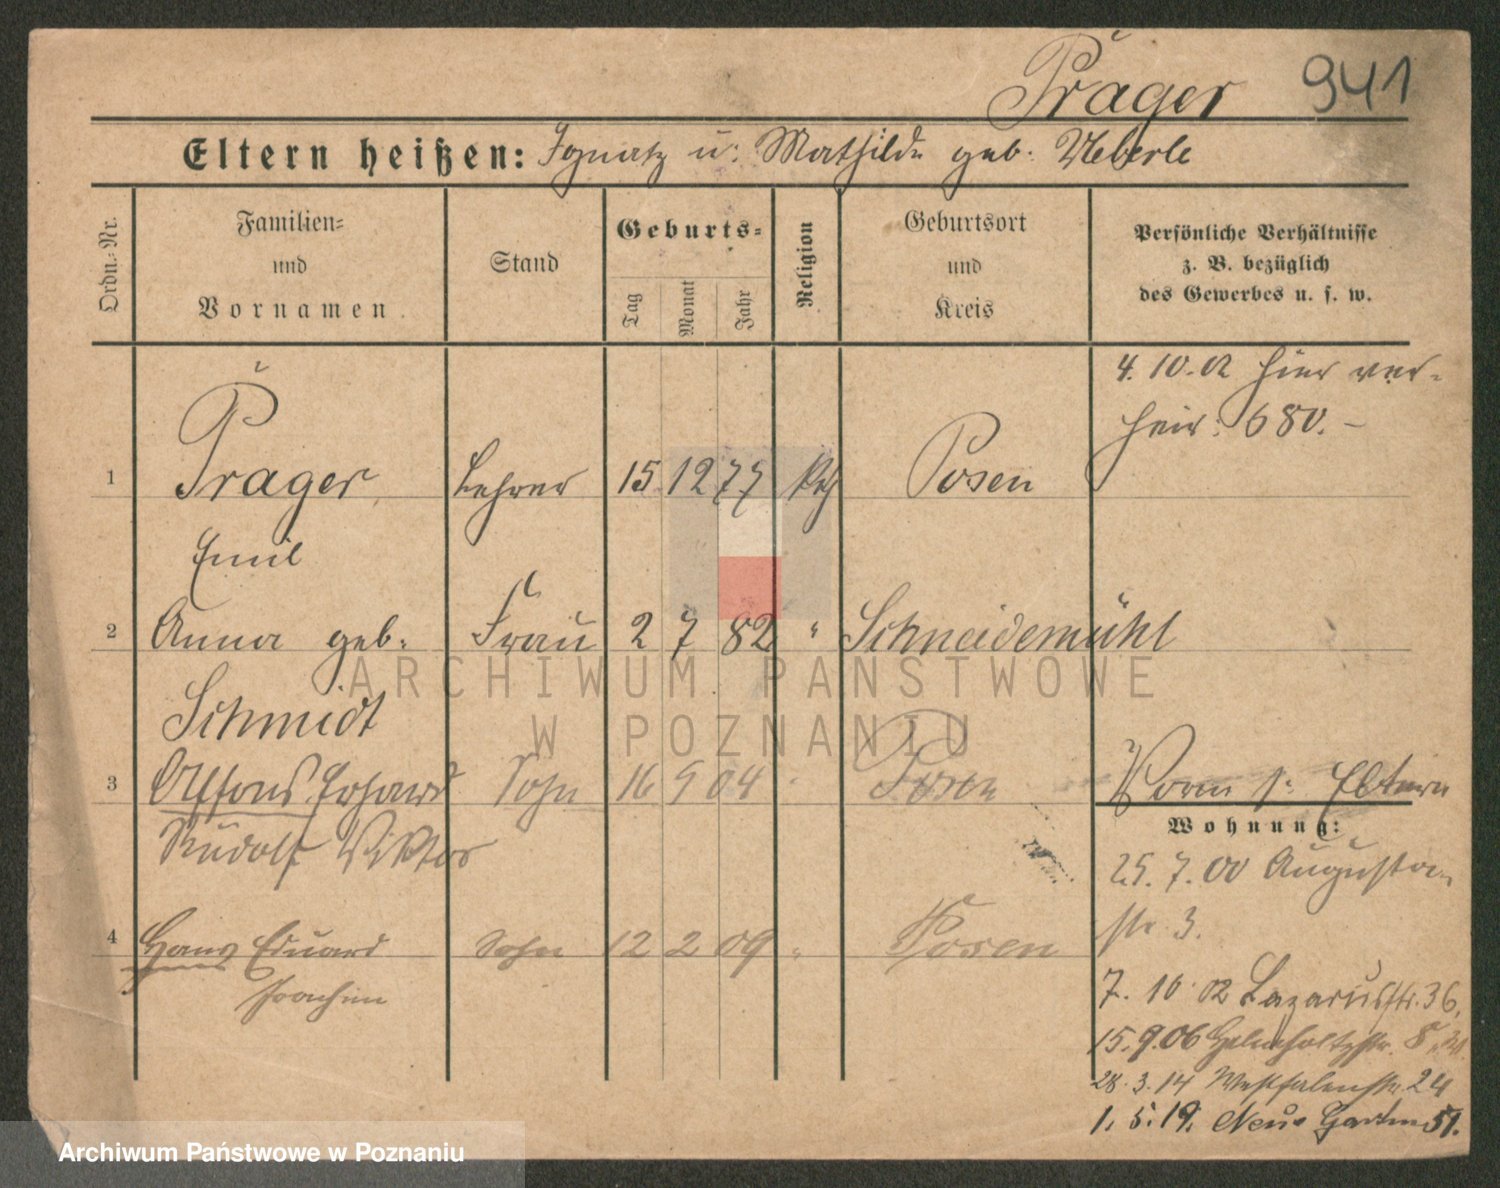 Präger 941
Eltern heißen: Ignatz u: Mathilde geb. Ueberle
Ordn.-Nr.
Familien-
und
Vornamen.
Stand
Geburts-
Tag
Monat
Jahr
Religion
Geburtsort
und
Kreis
Persönliche Verhältnisse
z. B. bezüglich
des Gewerbes u. s. w.
4. 10. 02 hier ver-
heir. 680. -
1 Präger Lehrer 15 12 77 kth Posen
Emil
2 Anna geb. Frau 2 7 82 " Schneidemühl
Schmidt
3 Alfons Erhard Sohn 16 9 04 Posen
Rudolf Viktor
Vorm s. Eltern
Wohnung:
25. 7. 00 Augusta-
str 3.
4 Hans Eduard Sohn 12 2 09 " Posen
Joachim
7. 10 02 Lazarusstr. 36.
15. 9. 06 Helmholtzstr. 8
28. 3. 14 Westfalenstr. 24
1. 5. 19. Neue Garten 51.
ARCHIWUM PAŃSTWOWE
W POZNANIU
Archiwum Państwowe w Poznaniu